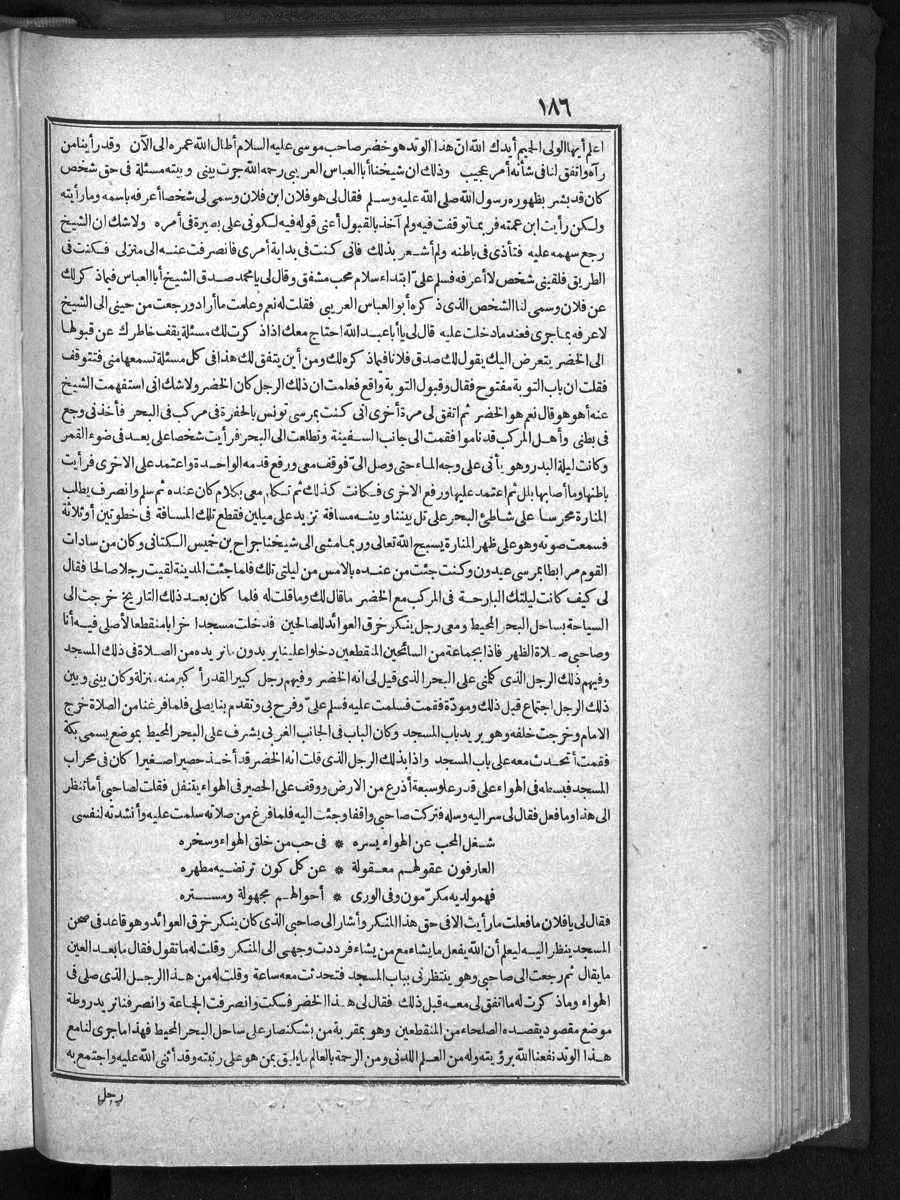 ١٨٦
اعلم أيها الولى الحيم أيدك الله انّ هذا الوتد هو خضر صاحب موسى عليه السلام أطال الله عمره الى الآن وقد رأينا من
رآه واتفق لنا فى شأنه أمر عجيب وذلك ان شيخنا أبا العباس العريبى رحمه الله جرت بينى وبينه مسئلة فى حق شخص
كان قد بشر بظهوره رسول الله صلى الله عليه وسلم فقال لى هو فلان ابن فلان وسمى لى شخصا أعرفه باسمه وما رأيته
ولكن رأيت ابن عمته فربما توقفت فيه ولم آخذ بالقبول أعنى قوله فيه لكونى على بصيرة فى أمره ولا شك ان الشيخ
رجع سهمه عليه فتأذى فى باطنه ولم أشعر بذلك فانى كنت فى بداية أمرى فانصرفت عنه الى منزلى فكنت فى
الطريق فلقينى شخص لا أعرفه فسلم علىّ ابتداء سلام محب مشفق وقال لى يا محمد صدق الشيخ أبا العباس فيما ذكر لك
عن فلان وسمى لنا الشخص الذى ذكره أبو العباس العريبى فقلت له نعم وعلمت ما أراد ورجعت من حينى الى الشيخ
لاعرفه بما جرى فعندما دخلت عليه قال لى يا أبا عبد الله احتاج معك اذا ذكرت لك مسئلة يقف خاطرك عن قبولها
الى الخضر يتعرض اليك يقول لك صدق فلانا فيما ذكره لك ومن أين يتفق لك هذا فى كل مسئلة تسمعها منى فتتوقف
فقلت ان باب التوبة مفتوح فقال وقبول التوبة واقع فعلمت ان ذلك الرجل كان الخضر ولا شك انى استفهمت الشيخ
عنه أهو هو قال نعم هو الخضر ثم اتفق لى مرة أخرى انى كنت بمرسى تونس بالحفرة فى مركب فى البحر فأخذنى وجع
فى بطنى وأهل المركب قد ناموا فقمت الى جانب السفينة وتطلعت الى البحر فرأيت شخصا على بعد فى ضوء القمر
وكانت ليلة البدر وهو يأتى على وجه الماء حتى وصل الىّ فوقف معى ورفع قدمه الواحدة واعتمد على الاخرى فرأيت
باطنها وما أصابها بلل ثم اعتمد عليها ورفع الاخرى فكانت كذلك ثم تكلم معى بكلام كان عنده ثم سلم وانصرف يطلب
المنارة محرسا على شاطئ البحر على تل بيننا وبينه مسافة تزيد على ميلين فقطع تلك المسافة فى خطوتين أو ثلاثة
فسمعت صوته وهو على ظهر المنارة يسبح الله تعالى وربما مشى الى شيخنا جراح بن خميس الكتانى وكان من سادات
القوم مرابطا بمرسى عيدون وكنت جئت من عنده بالامس من ليلتى تلك فلما جئت المدينة لقيت رجلا صالحا فقال
لى كيف كانت ليلتك البارحة فى المركب مع الخضر ما قال لك وما قلت له فلما كان بعد ذلك التاريخ خرجت الى
السياحة بساحل البحر المحيط ومعى رجل ينكر خرق العوائد للصالحين فدخلت مسجدا خرابا منقطعا لأصلى فيه أنا
وصاحبى صلاة الظهر فاذا بجماعة من السائحين المنقطعين دخلوا علينا يريدون ما نريده من الصلاة فى ذلك المسجد
وفيهم ذلك الرجل الذى كلمنى على البحر الذى قيل لى انه الخضر وفيهم رجل كبير القدر أكبر منه منزلة وكان بينى وبين
ذلك الرجل اجتماع قبل ذلك ومودّة فقمت فسلمت عليه فسلم علىّ وفرح بى وتقدم بنا يصلى فلما فرغنا من الصلاة خرج
الامام وخرجت خلفه وهو يريد باب المسجد وكان الباب فى الجانب الغربى يشرف على البحر المحيط بموضع يسمى بكة
فقمت أتحدث معه على باب المسجد واذا بذلك الرجل الذى قلت انه الخضر قد أخذ حصيرا صغيرا كان فى محراب
المسجد فبسطه فى الهواء على قدر علو سبعة أذرع من الارض ووقف على الحصير فى الهواء يتنفل فقلت لصاحبى أما تنظر
الى هذا وما فعل فقال لى سر اليه وسله فتركت صاحبى واقفا وجئت اليه فلما فرغ من صلاته سلمت عليه وأنشدته لنفسى
شغل المحب عن الهواء بسره * فى حب من خلق الهواء وسخره
العارفون عقولهم معقولة * عن كل كون ترتضيه مطهره
فهمو لديه مكرّمون وفى الورى * أحوالهم مجهولة ومستره
فقال لى يا فلان ما فعلت ما رأيت الا فى حق هذا المنكر وأشار الى صاحبى الذى كان ينكر خرق العوائد وهو قاعد فى صحن
المسجد ينظر اليه ليعلم أن الله يفعل ما يشاء مع من يشاء فرددت وجهى الى المنكر وقلت له ما تقول فقال ما بعد العين
ما يقال ثم رجعت الى صاحبى وهو ينتظرنى بباب المسجد فتحدثت معه ساعة وقلت له من هذا الرجل الذى صلى فى
الهواء وما ذكرت له ما اتفق لى معه قبل ذلك فقال لى هذا الخضر فسكت وانصرفت الجماعة وانصرفنا نريد روطة
موضع مقصود يقصده الصلحاء من المنقطعين وهو بمقربة من بشكنصار على ساحل البحر المحيط فهذا ما جرى لنا مع
هذا الوتد نفعنا الله برؤيته وله من العلم اللدنى ومن الرحمة بالعالم ما يليق بمن هو على رتبته وقد أثنى الله عليه واجتمع به
رجل